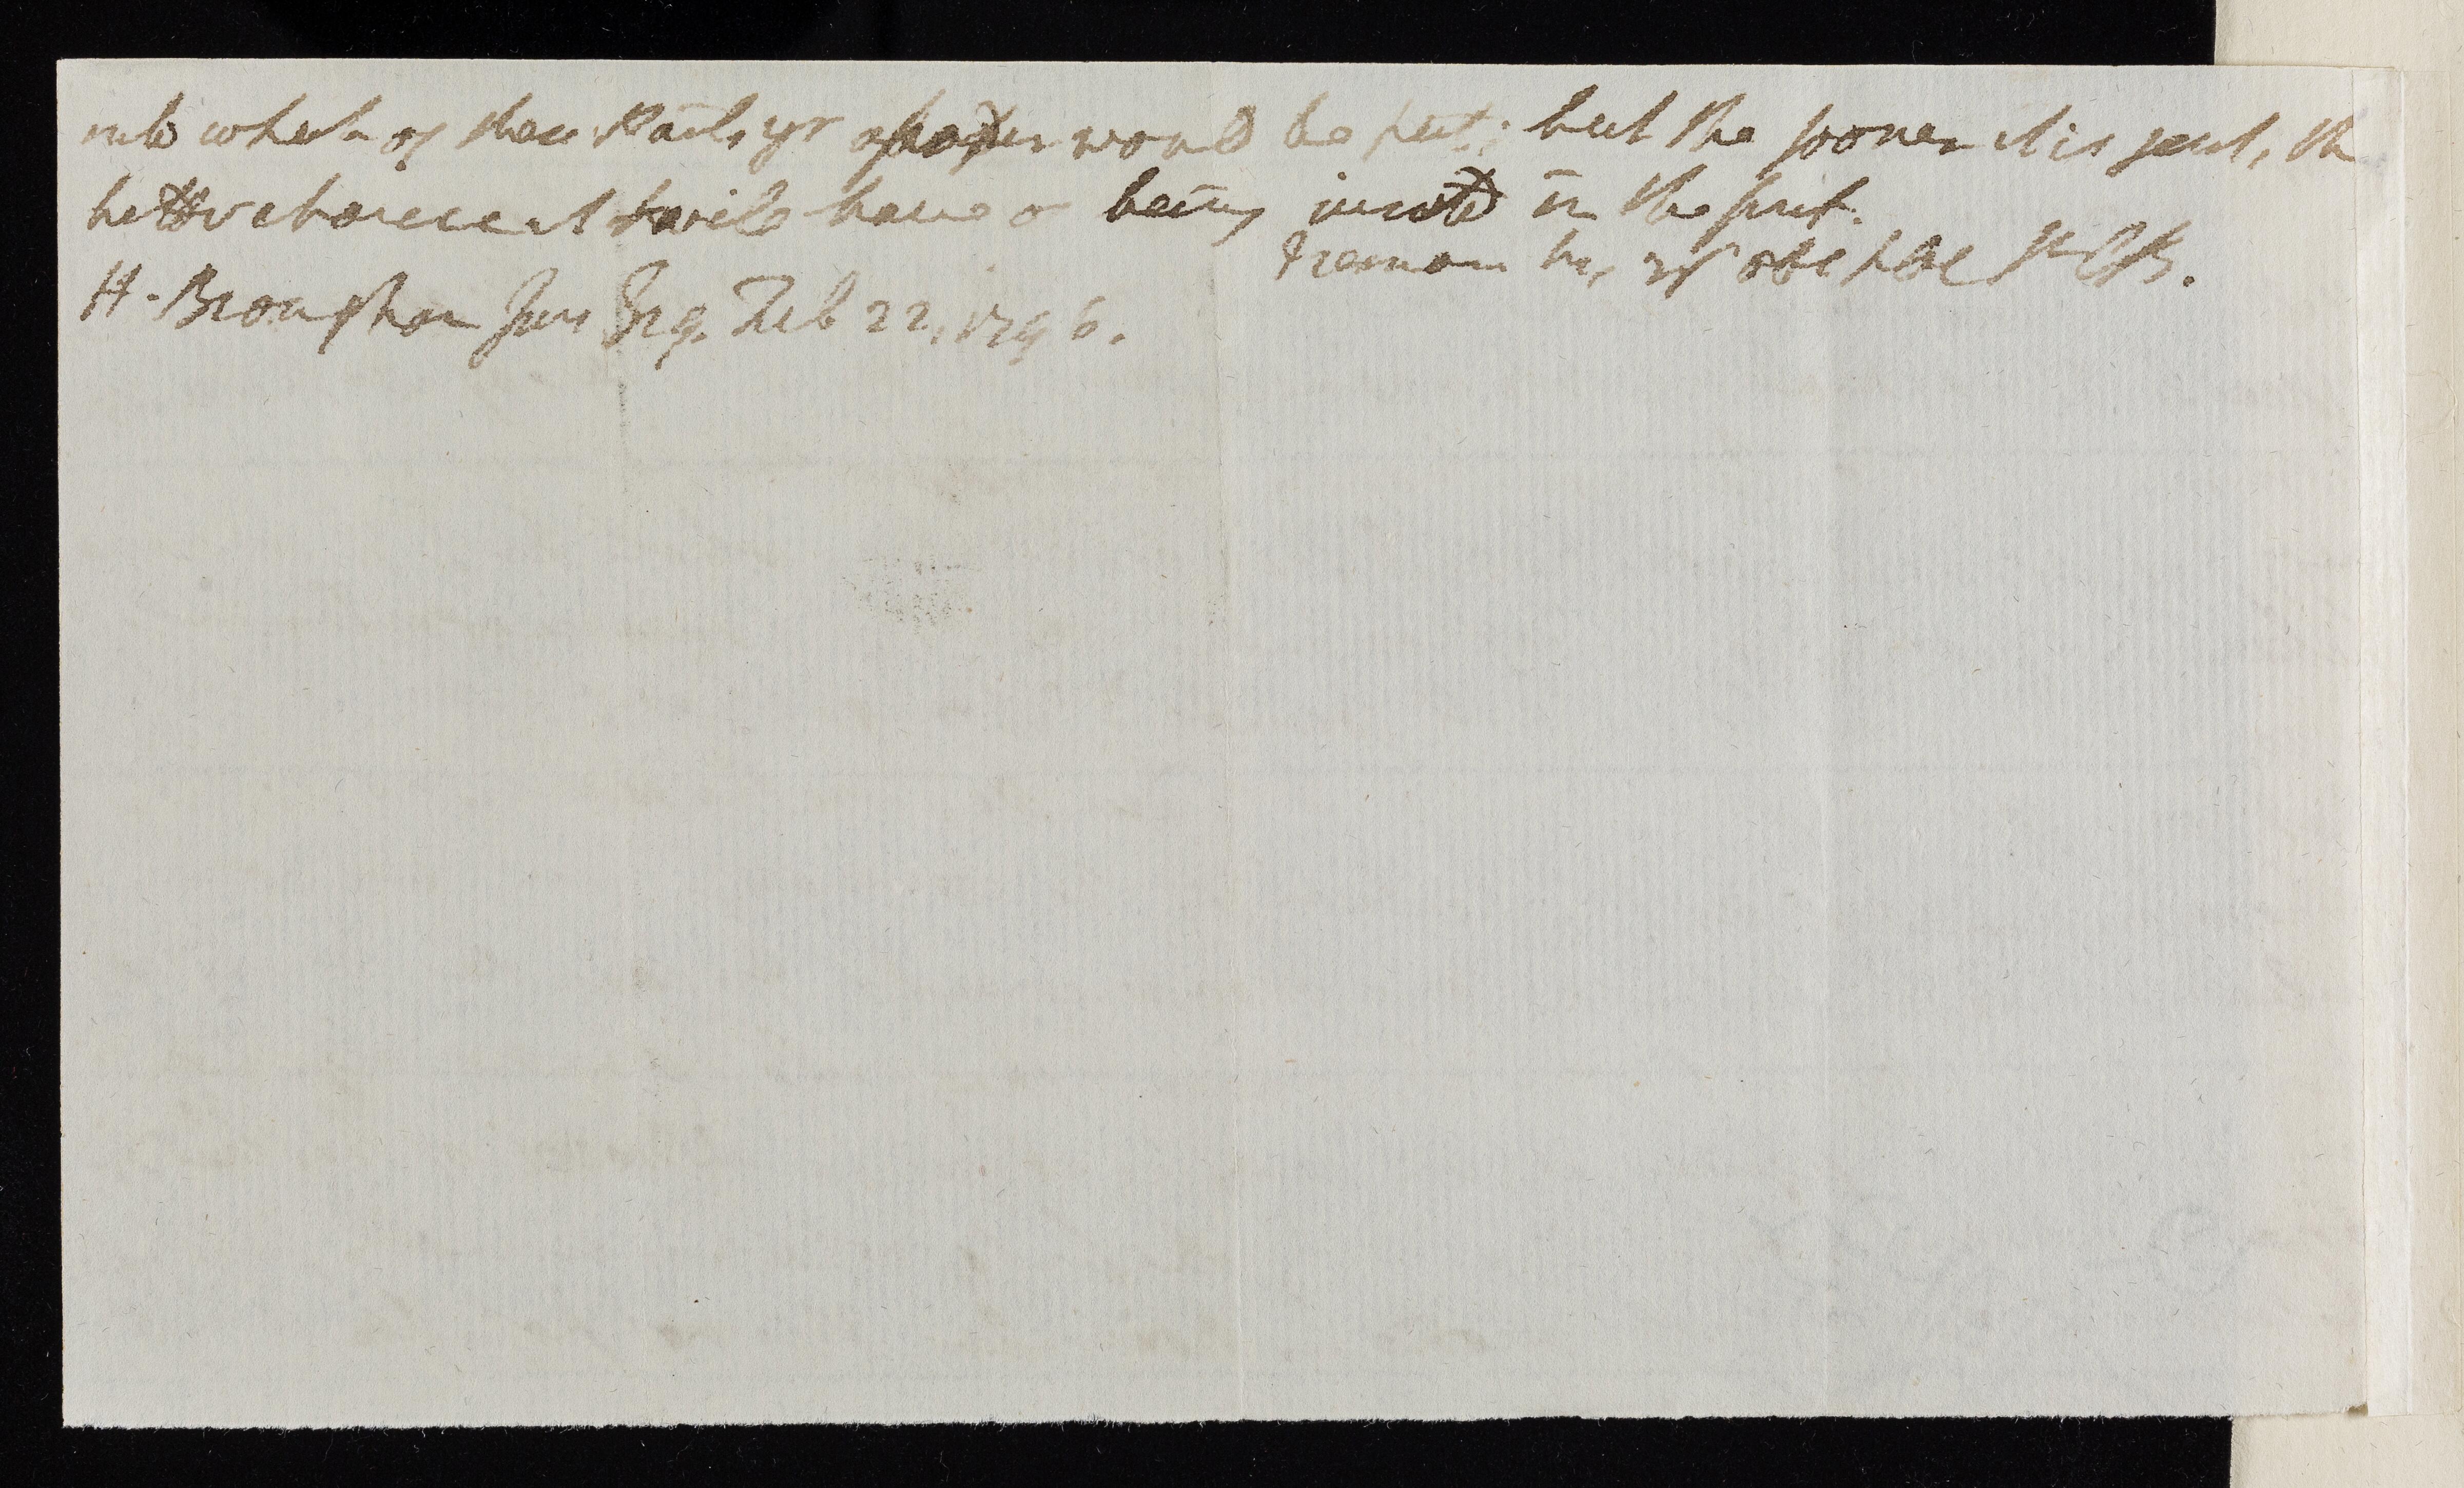 into which of these Parts yr paper would be put; but the sooner it is sent, the
better chance it will have of being inserted in the first.
I remain Sir, yr obt hble Sr
H. Brougham Junr Esq. Feb 22, 1796.